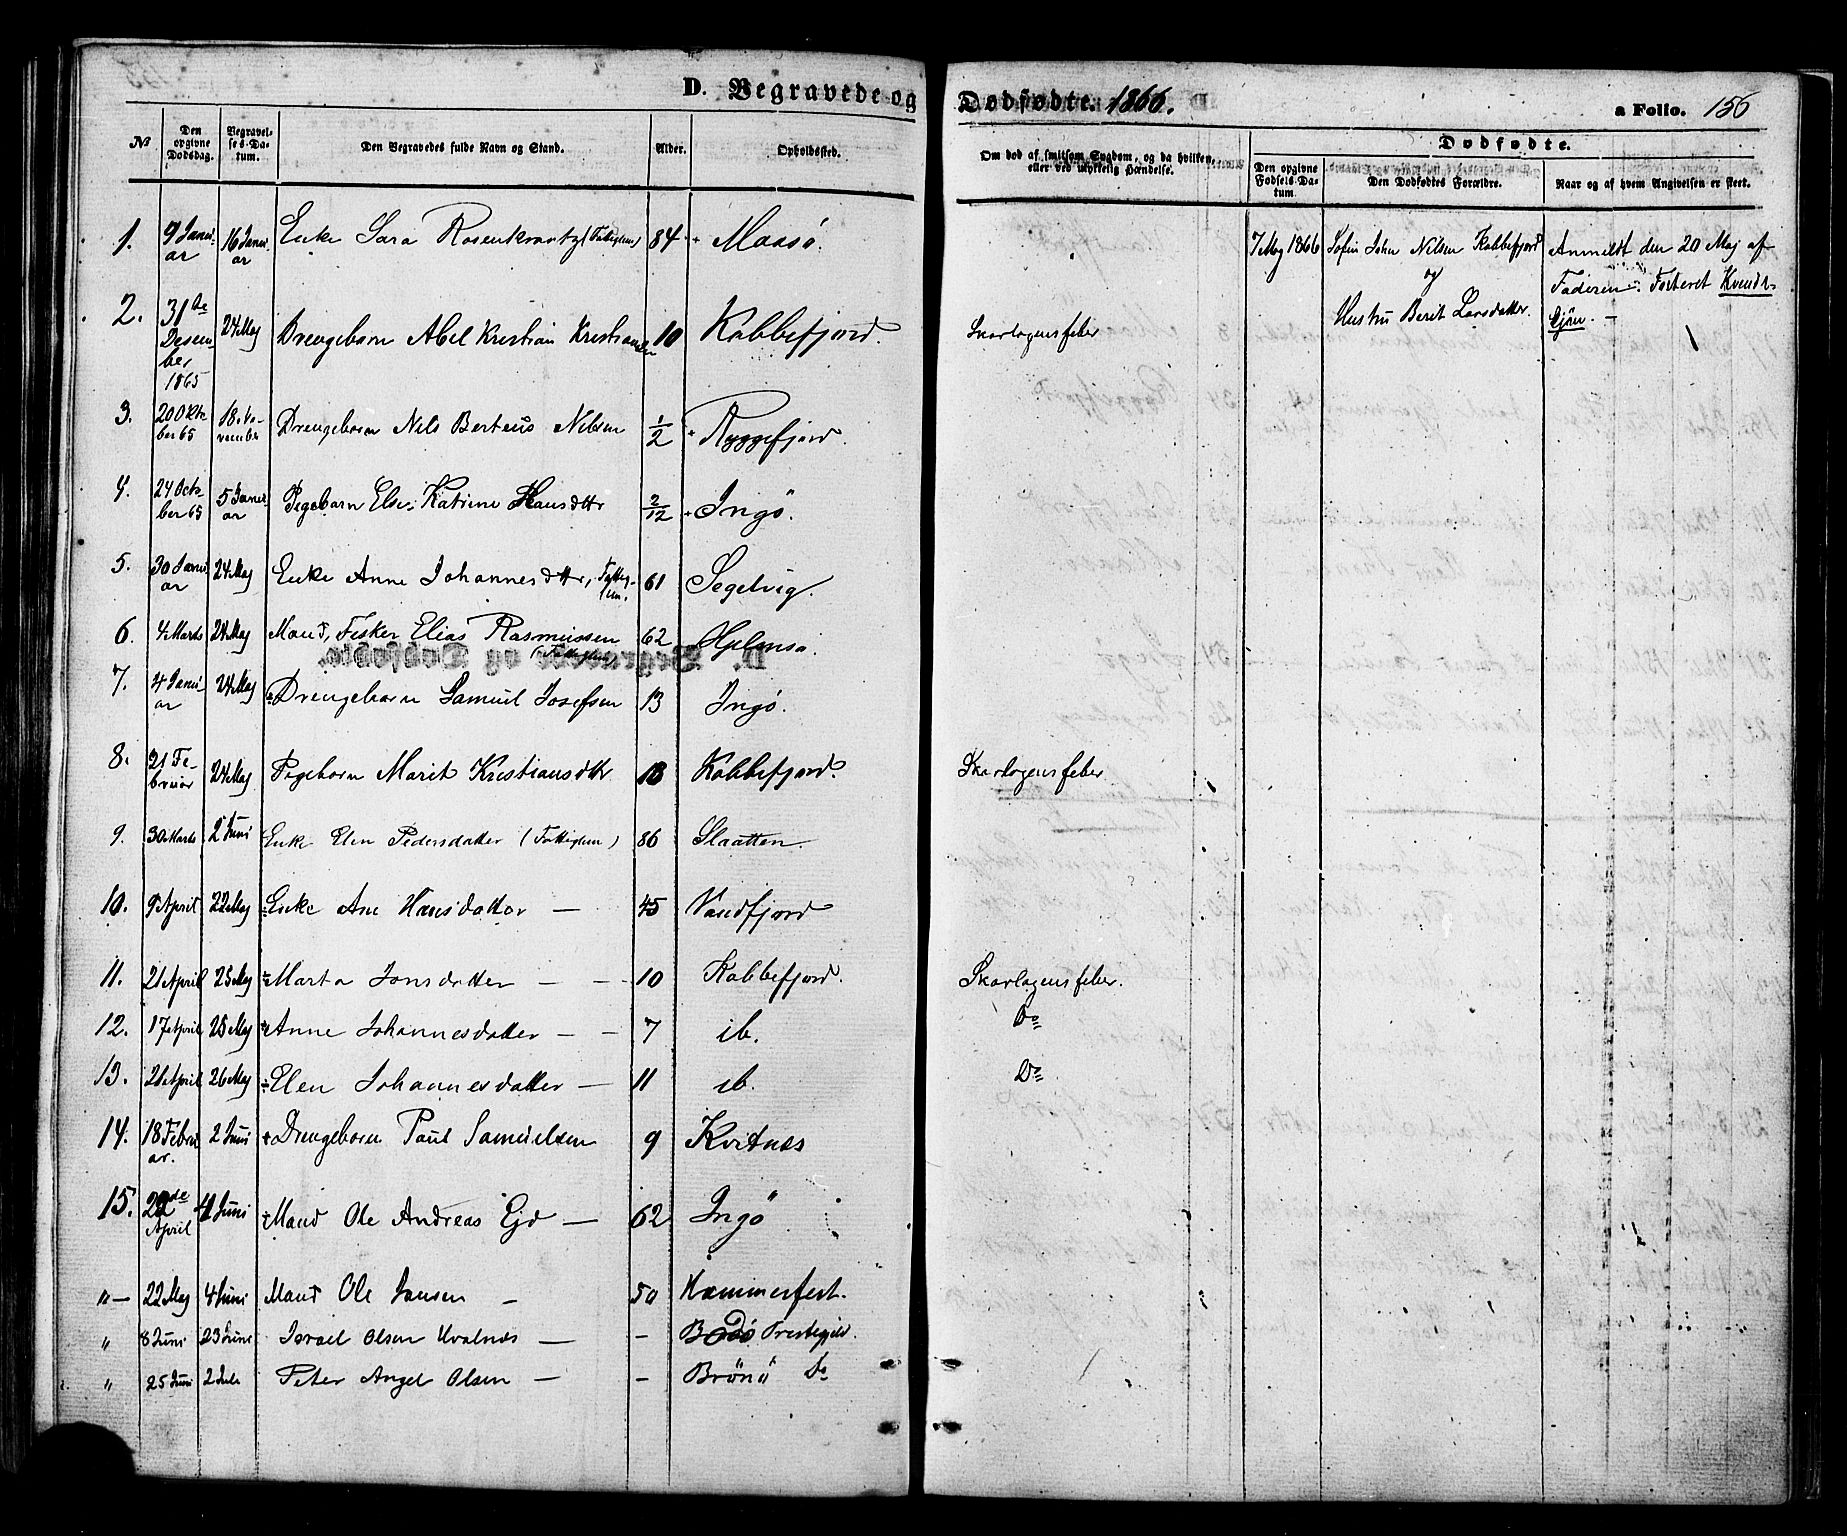 D. Begravede og Dødfødte. 1866. a Folio. 156
№ Den opgivne Dødsdag. Begravelses-Datum. Den Begravedes fulde Navn og Stand. Alder. Opholdssted. Om død af smitsom Sygdom, og da hvilken, eller ved ulykkelig Hændelse. Dødfødte. Den opgivne Fødsels-Datum. Den Dødfødtes Forældre. Naar og af hvem Angivelsen er skeet.
1. 9 Januar 16 Januar Enke Sara Rosenkrantz (Fattiglem) 84 Maasø. 7 Maj 1866 Søfin John Nilsen Kobbefjord Anmeldt den 20 Maj af
og Faderen. Fosteret Kvinde-
Hustru Berit Larsdatter. kjøn. —
2. 31te Desember 1865 24 Maj Drengebarn Abel Kristian Kristiansen 10 Kobbefjord. Skarlagensfeber
3. 20 Oktober 65 18 November Drengebarn Nils Berteus Nilsen 1/2 Ryggefjord.
4. 24 October 65 5 Januar Pigebarn Else Katrine Hansdttr 2/12 Ingö.
5. 30 Januar 24 Maj Enke Anne Johannesdttr, Fattiglem. 61 Segelvig.
6. 4 Marts 24 Maj Mand, Fisker Elias Rasmussen (Fattiglem) 62 Hjelmsø.
7. 4 Januar 24 Maj Drengebarn Samuel Josefsen 13 Ingø.
8. 21 Februar 24 Maj Pigebarn Marit Kristiansdttr 18 Kobbefjord. Skarlagensfeber
9. 30 Marts 2 Juni Enke Elen Pedersdatter (Fattiglem) 86 Slaatten.
10. 9 April 22 Maj Enke Ane Hansdatter — 45 Vandfjord
11. 21 April 25 Maj Marta Jonsdatter — - 10 Kobbefjord. Skarlagensfeber.
12. 17 April 25 Maj Anne Johannesdatter — - 7 ib. Do
13. 21 April 26 Maj Elen Johannesdatter — 11 ib. Do
14. 18 Februar. 2 Juni Drengebarn Paul Samuelsen 9 Kvitnæs
15. 22de April 4 Juni Mand Ole Andreas Ejd — 62 Ingö
" — 22 Maj 4 Juni Mand Ole Jansen — 50 Hammerfest.
" 8 Juni 23 Juni Israel Olsen Hvalnæs — - Bodö Prestegjeld.
" 25 Juni 2 Jule Peter Angel Olsen — - Brönö Do